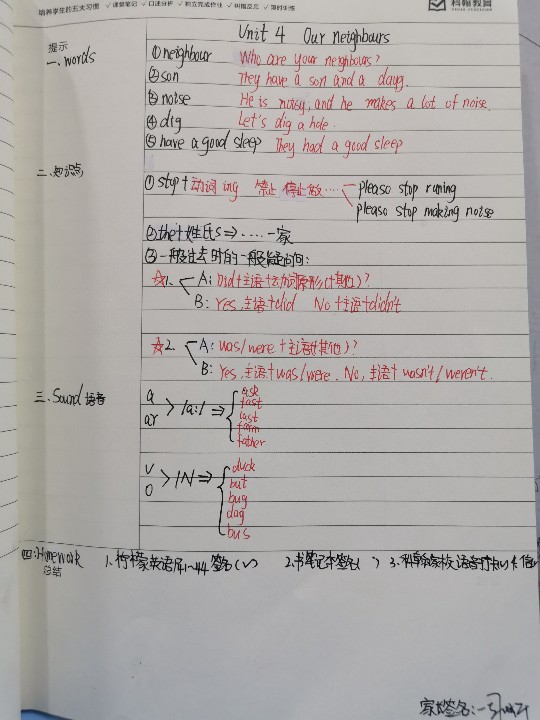 培养学生的五大习惯 ✓课堂笔记 ✓口述分析 ✓独立完成作业 ✓纠错反思 ✓限时训练
科翰教育
Unit 4 Our neighbours
提示
一、words
①neighbour Who are your neighbours?
②son They have a son and a daug.
③noise He is noisy, and he makes a lot of noise.
④dig Let's dig a hole.
⑤have a good sleep They had a good sleep
二、知识点
①stop+动词ing 禁止 停止做…… please stop runing
please stop making noise
②the+姓氏s⇒……一家
③一般过去时的一般疑问句:
☆1. A: Did+主语+动词原形(+其他)?
B: Yes,主语+did No+主语+didn't
☆2. A: Was/were+主语(+其他)?
B: Yes,主语+was/were. No,主语+wasn't/weren't.
三、Sound 语音
a
ar > /a:/ ⇒
ask
fast
last
farm
father
u
o > /ʌ/ ⇒
duck
but
bug
dag
bus
四:Homework 1.柠檬英语 签名(✓) 2.书笔记本签名( ) 3.科翰家校语音打
总结
家长签名: